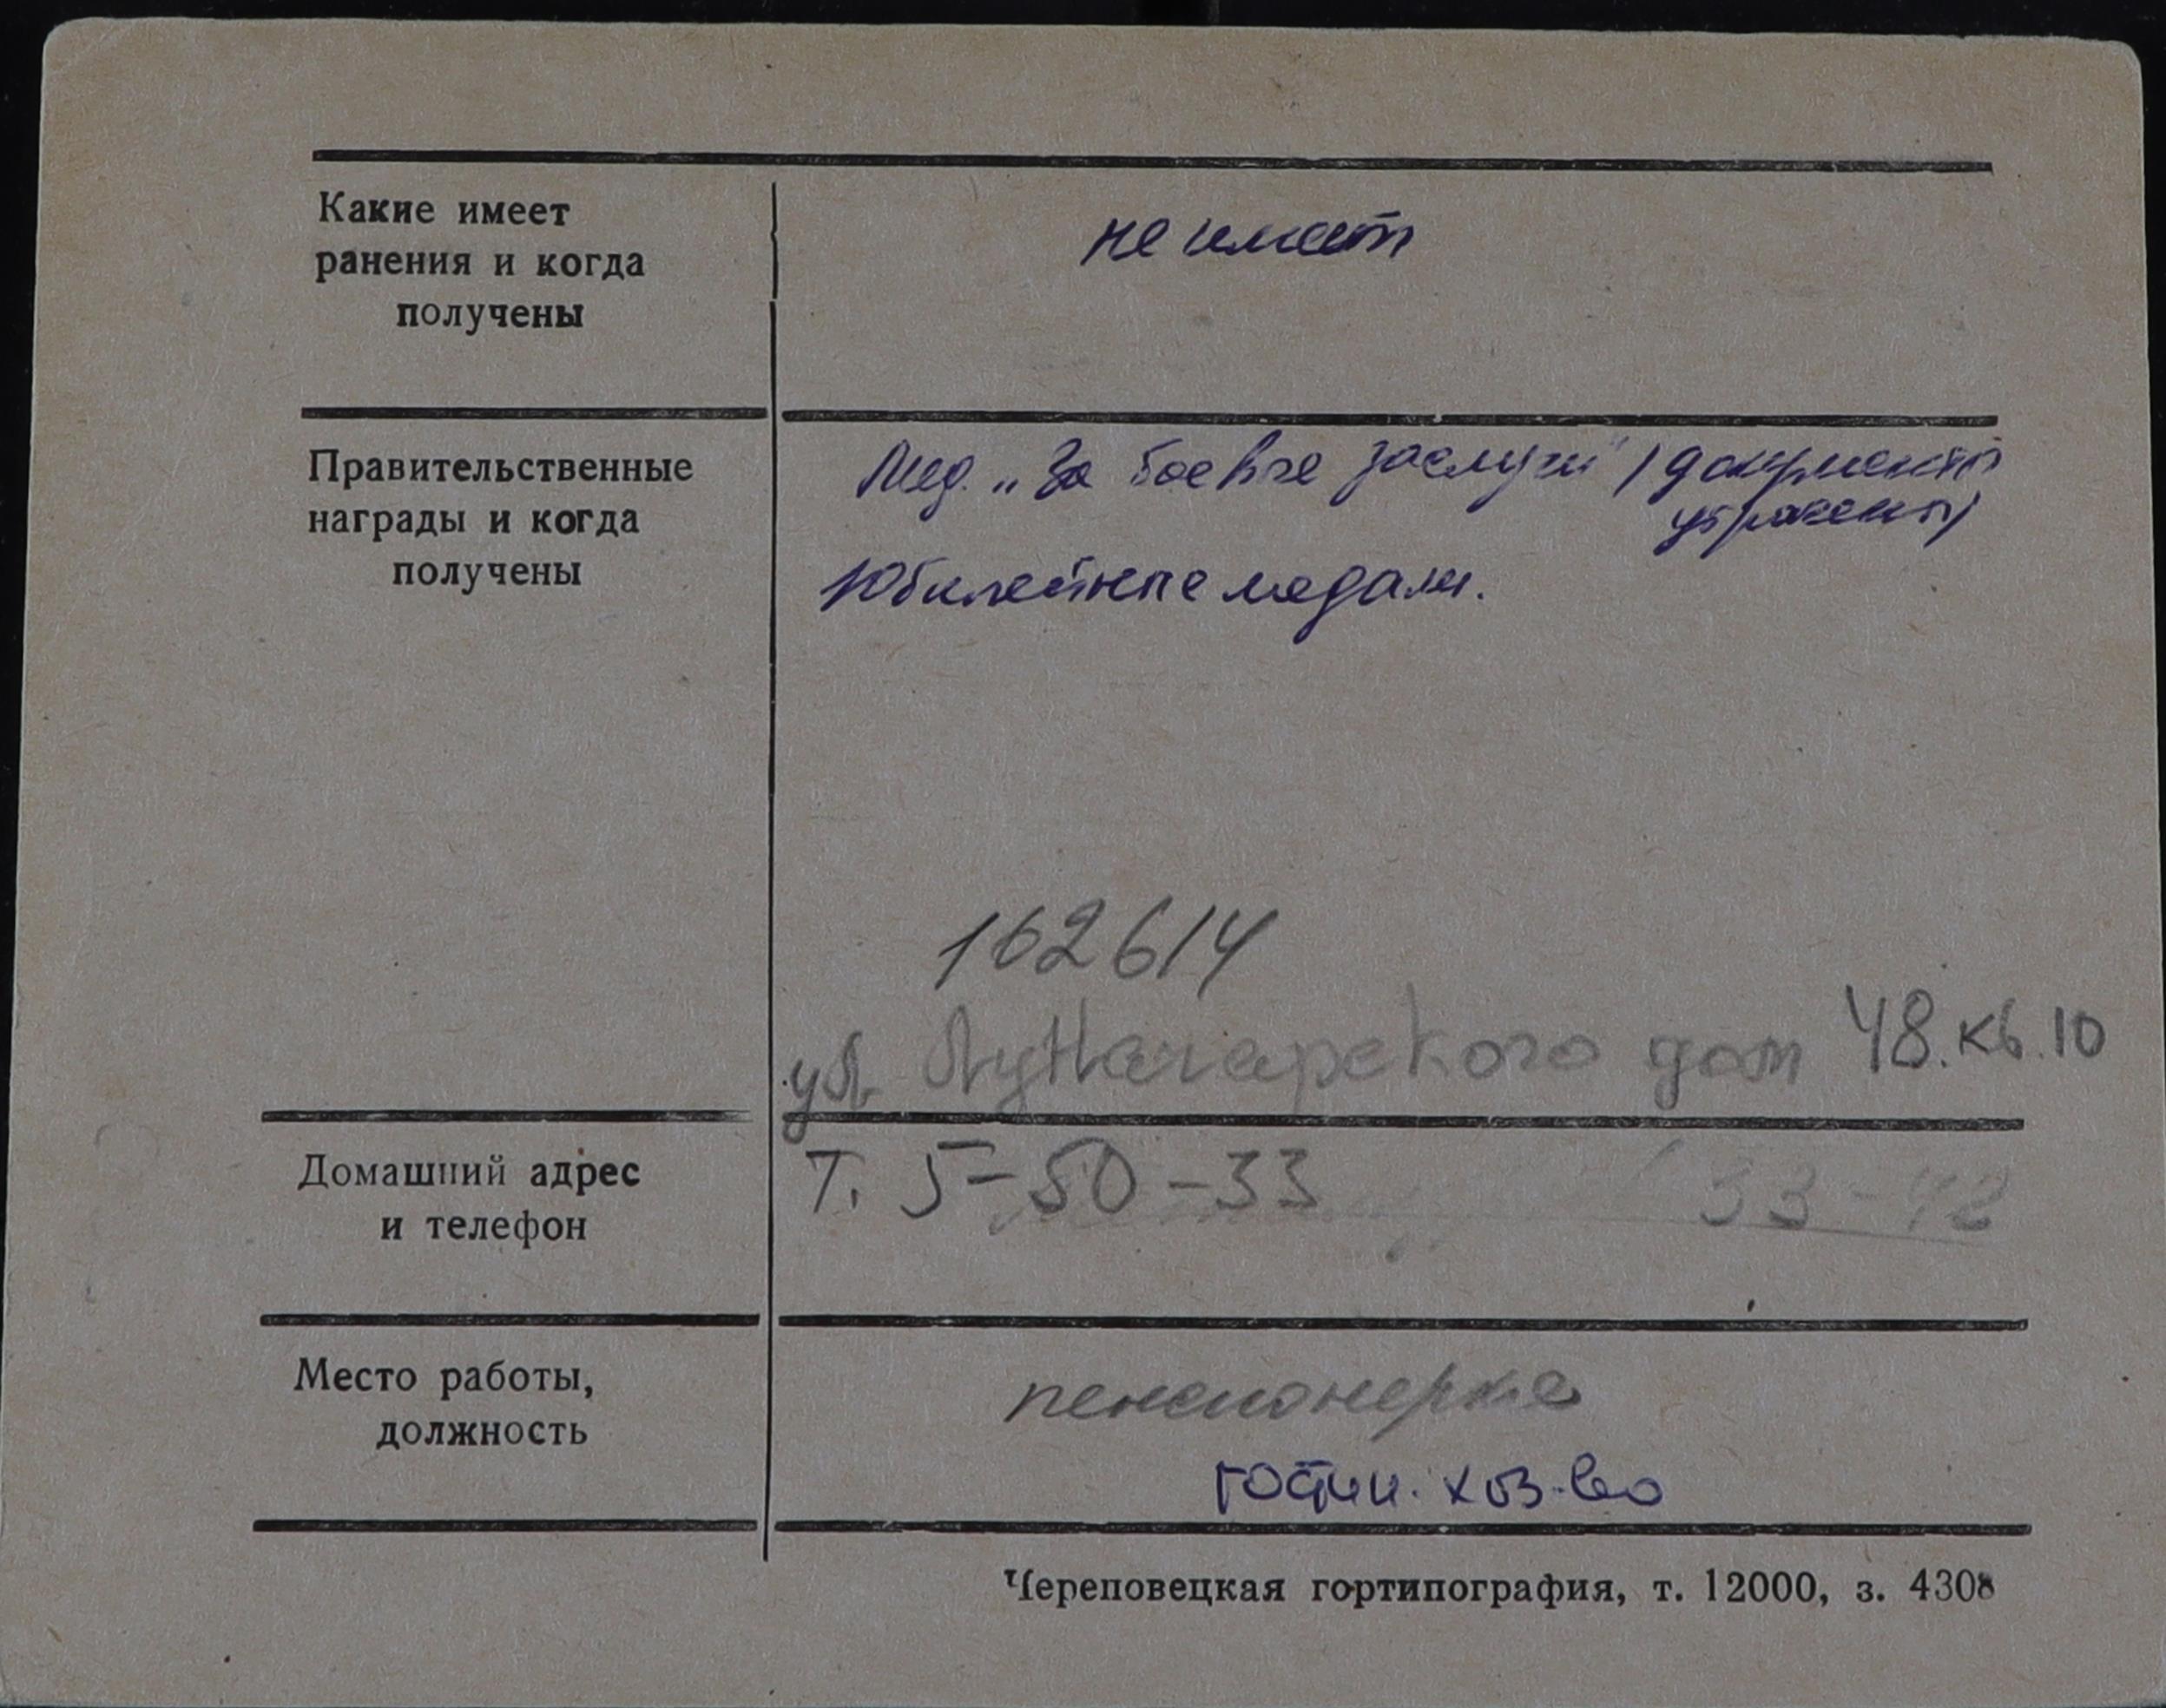 Какие имеет
ранения и когда
получены
не имеет
Правительственные
награды и когда
получены
Мед. „За боевые заслуги" (документы
утрачены)
Юбилейные медали.
162614
ул. Луначарского дом 48. кв. 10
Домашний адрес
и телефон
Т. 5-50-33 33-42
Место работы,
должность
пенсионерка
гостин. хоз-во
Череповецкая гортипография, т. 12000, з. 4308